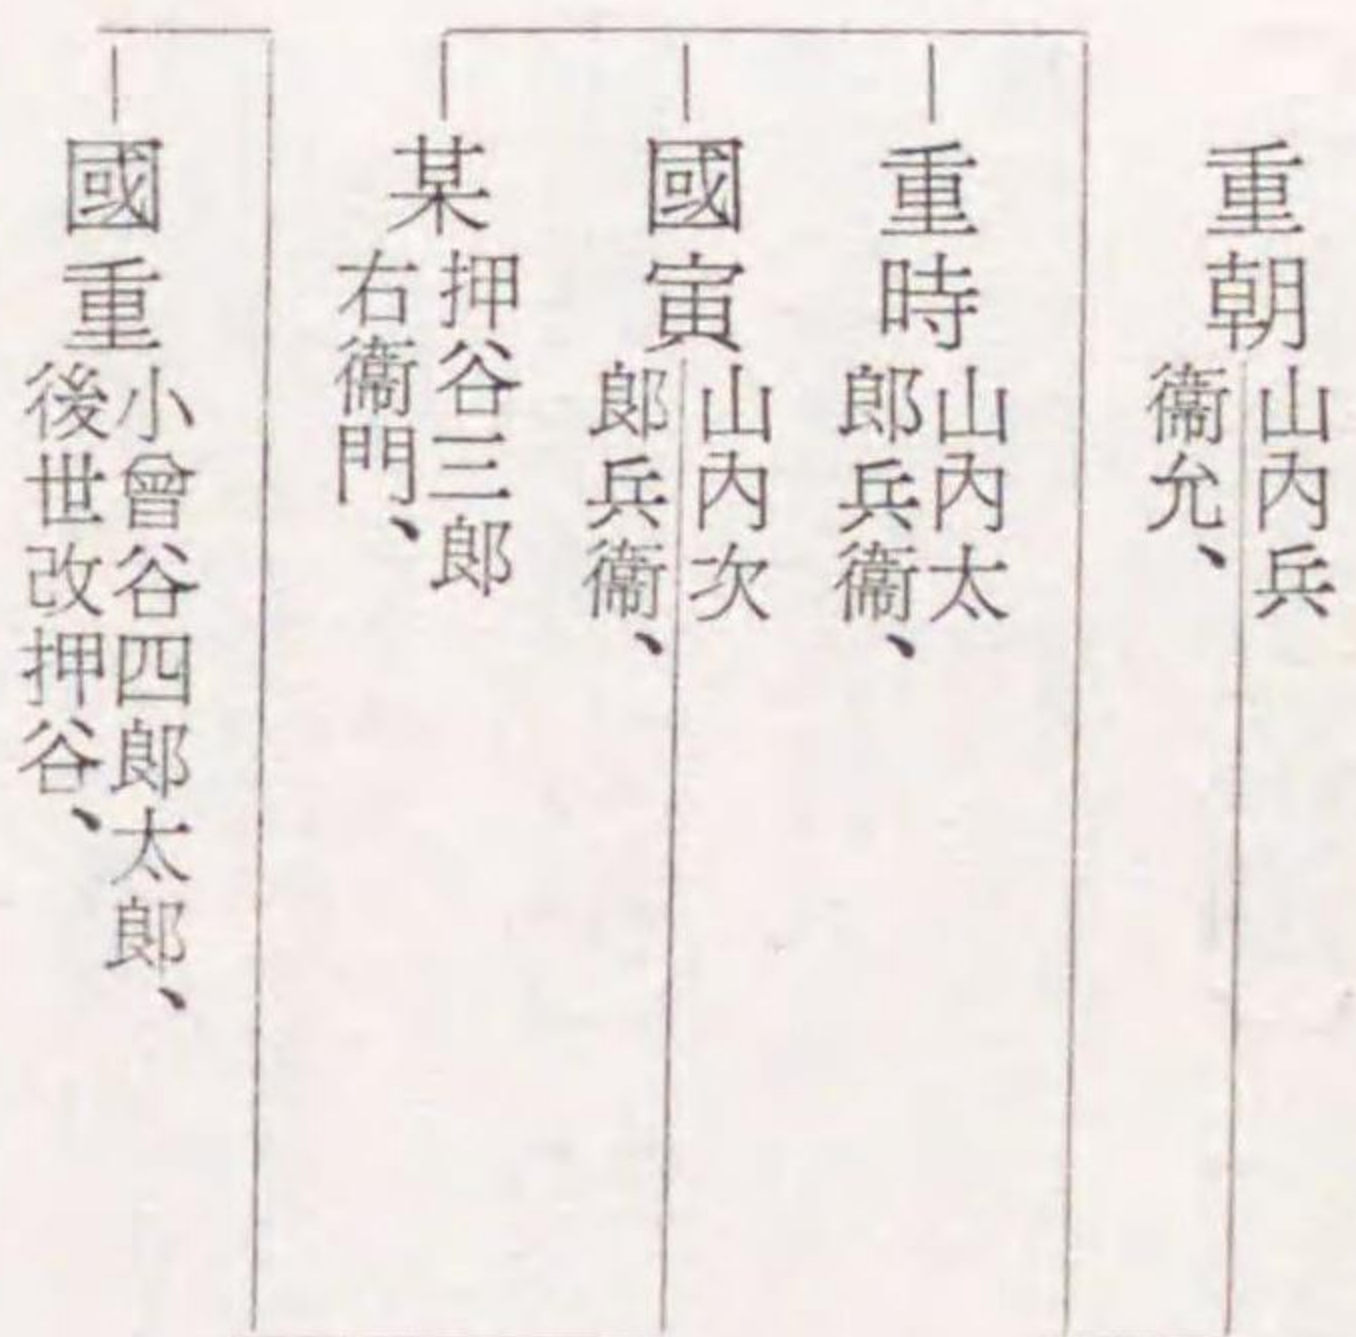 重朝
山內兵
衞允、
重時
山內太
郎兵衞、
國寅
山內次
郎兵衞、
某
押谷三郎
右衞門、
國重
小曾谷四郎太郎、
後世改押谷、